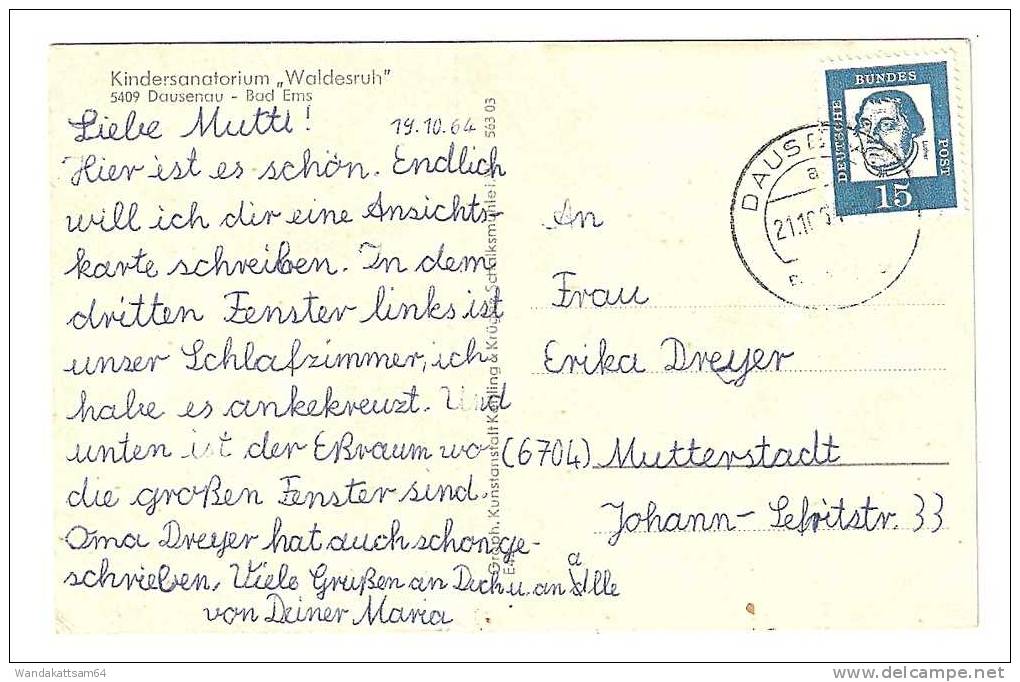 Kindersanatorium „Waldesruh"
5409 Dausenau - Bad Ems
Liebe Mutti!
19.10.64
Hier ist es schön. Endlich
will ich dir eine Ansichts-
karte schreiben. In dem
dritten Fenster links ist
unser Schlafzimmer, ich
habe es ankekreuzt. Und
unten ist der Eßraum wo
die großen Fenster sind.
Oma Dreyer hat auch schon ge-
schrieben. Viele Grüßen an Dich u. an alle
von Deiner Maria
563 03
Graph. Kunstanstalt Kehling & Krüger, Schalksmühle
DEUTSCHE
BUNDES
POST
15
DAUSE
a
21.10.
An
Frau
Erika Dreyer
(6704) Mutterstadt
Johann- Sefritstr. 33
Wandakattsam64
www.delcampe.net